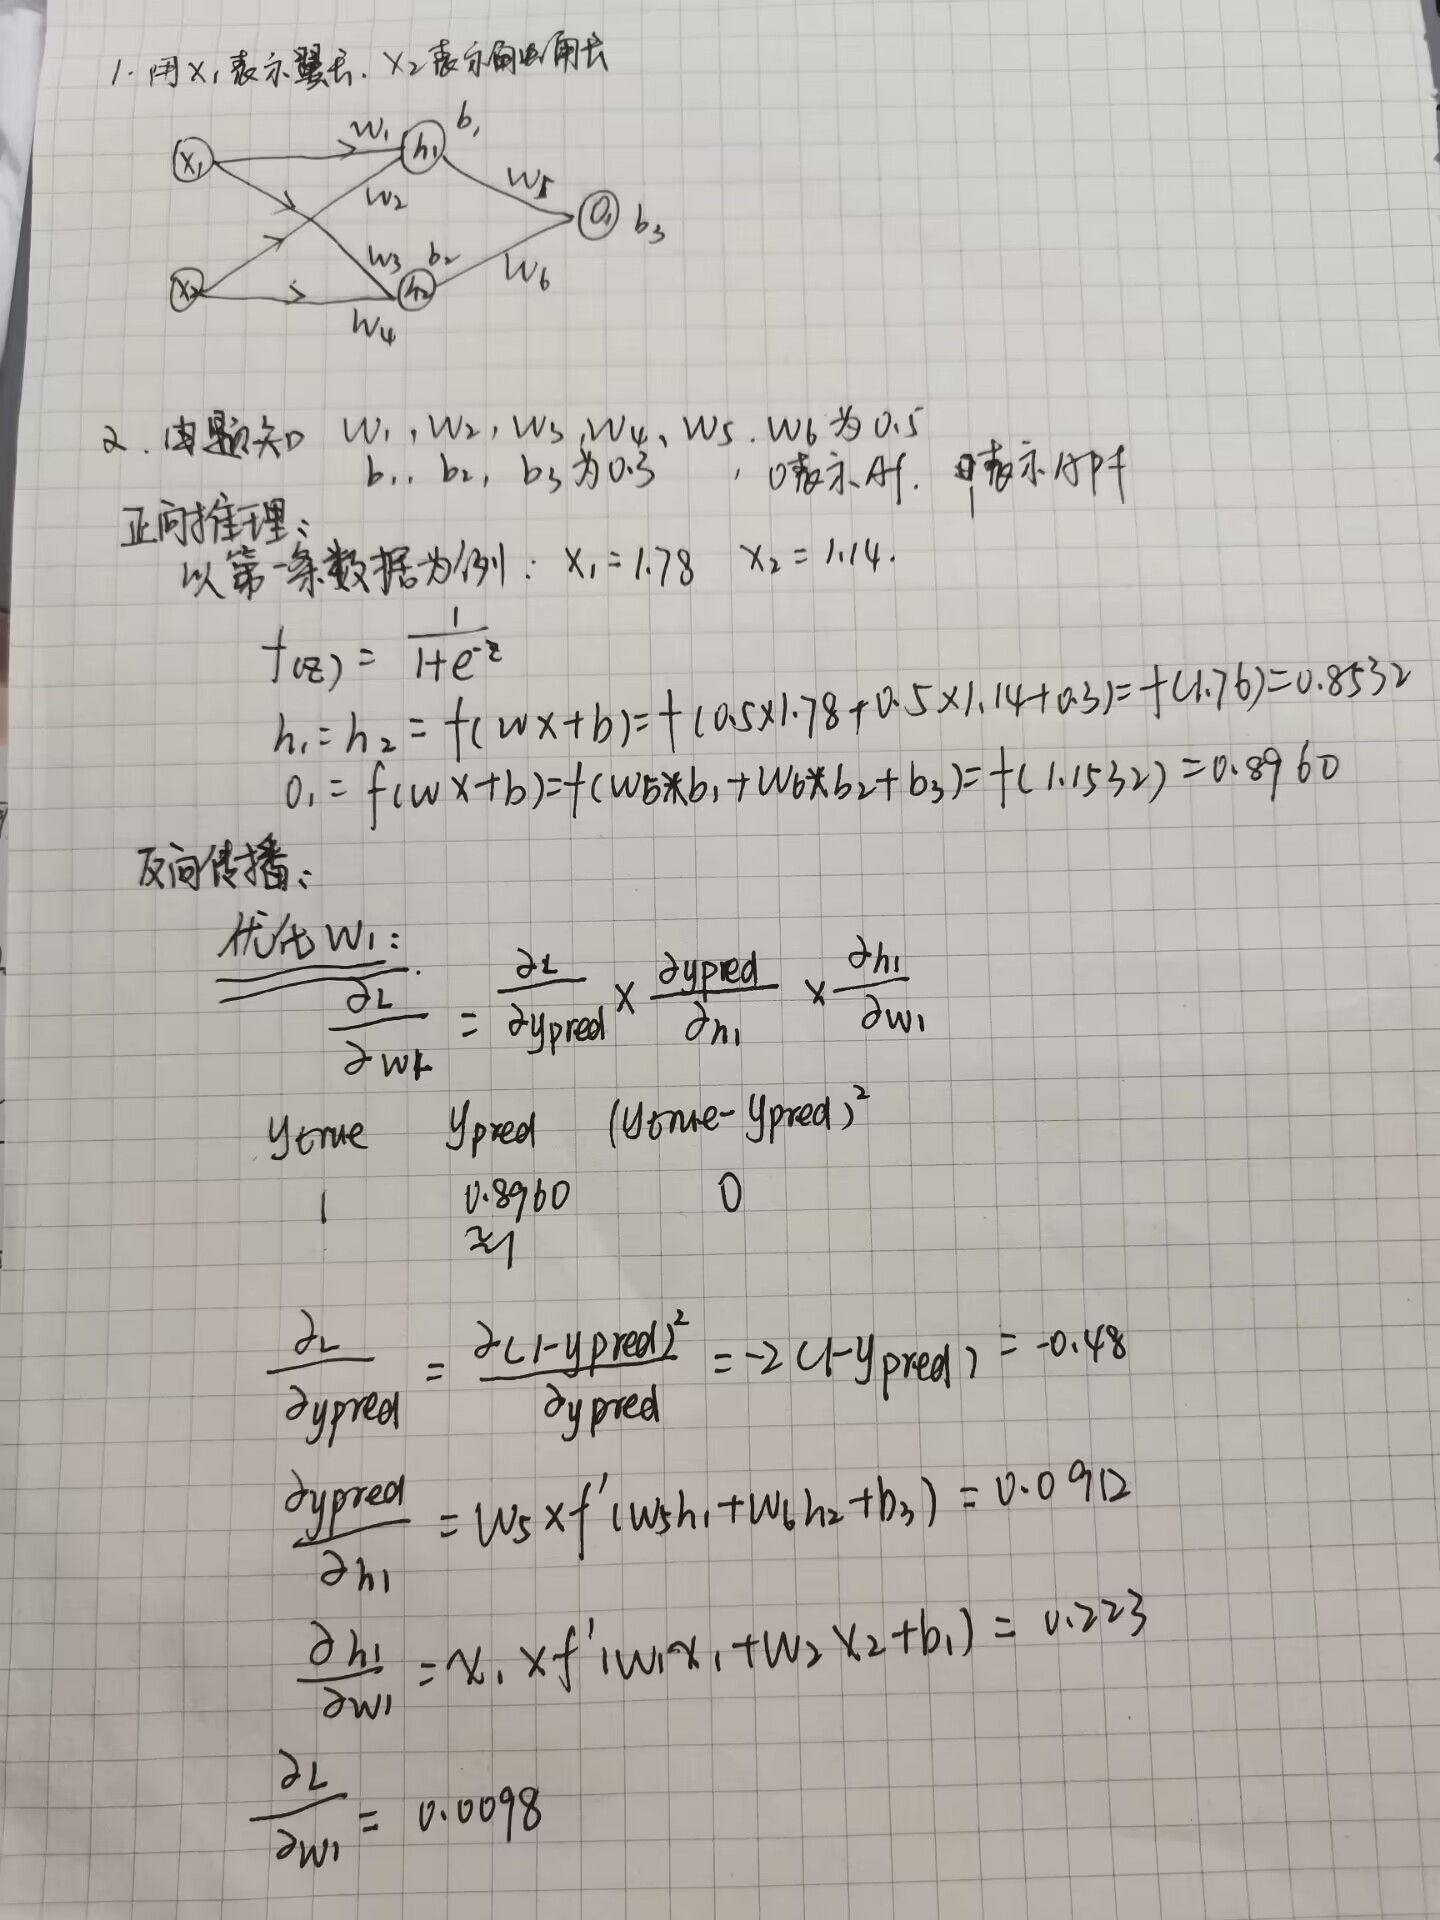 1. 用x₁表示翼长. x₂表示触角长
x₁ w₁ h₁ b₁
w₂ w₅ O₁ b₃
x₂ w₃ b₂ h₂ w₆
w₄
2. 由题知 w₁, w₂, w₃, w₄, w₅. w₆ 为 0.5
b₁. b₂, b₃ 为 0.3 , 0表示Af. 1表示Apf
正向推理:
以第一条数据为例: x₁=1.78 x₂=1.14.
f(z) = 1/(1+e^-z)
h₁=h₂ = f(wx+b)=f(0.5×1.78+0.5×1.14+0.3)=f(1.76)=0.8532
O₁ = f(wx+b)=f(w5*b₁+w6*b₂+b₃)=f(1.1532)=0.8960
反向传播:
优化w₁:
∂L/∂w₁ = ∂L/∂ypred × ∂ypred/∂h₁ × ∂h₁/∂w₁
ytrue ypred (ytrue-ypred)²
1 0.8960 0
≈1
∂L/∂ypred = ∂(1-ypred)²/∂ypred = -2(1-ypred) = -0.48
∂ypred/∂h₁ = w₅×f'(w₅h₁+w₆h₂+b₃) = 0.0912
∂h₁/∂w₁ = x₁×f'(w₁x₁+w₂x₂+b₁) = 0.223
∂L/∂w₁ = 0.0098